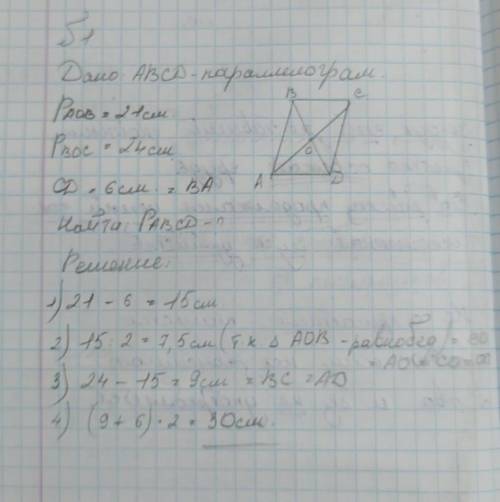 Б1
Дано: ABCD - параллелограм.
B C
PAOB = 21 см
PBOC = 24 см
O
CD = 6 см. = BA
A D
Найти: PABCD - ?
Решение:
1) 21 - 6 = 15 см
2) 15 : 2 = 7,5 см (т к △ AOB - равнобед) = BO
= AO = CO = OD
3) 24 - 15 = 9 см = BC = AD
4) (9 + 6) · 2 = 30 см.